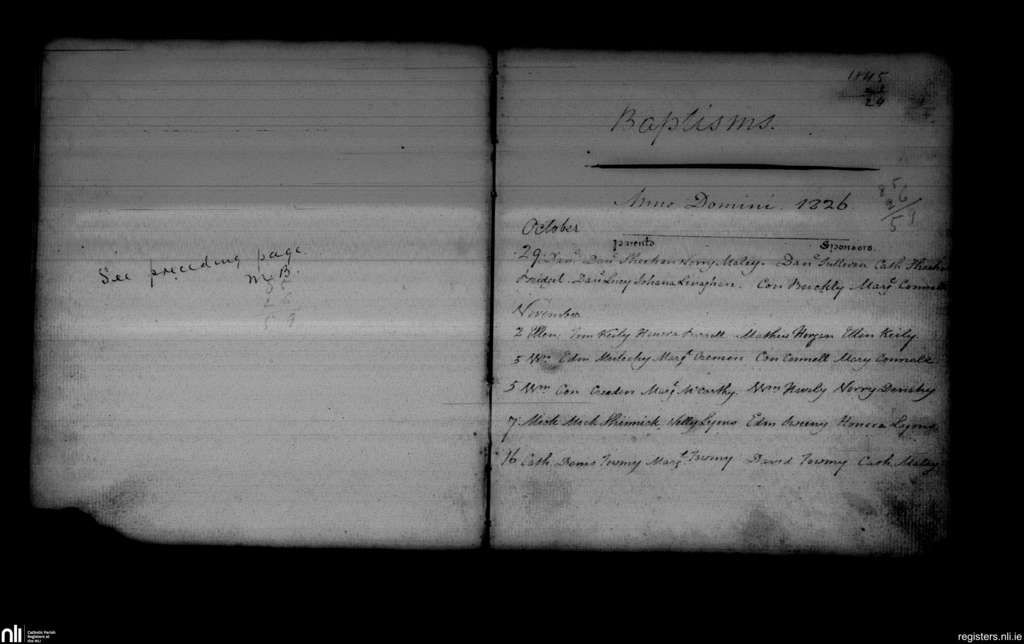 See preceding page
M.B.
1845
24
Baptisms.
Anno Domini. 1826
October
parents Sponsors.
29. Danl. Danl. Sheehan Norry Maley. Danl. Sullivan Cath. Sheehan
Bridget. Danl. Lucy Johana Con Buckly Margt. Connell
November
2 Ellen. Tim Keily Honora Mathias Horgan Ellen Keily.
5 Wm. Edm Mulechy Margt. Cremen Con Connell Mary Connell
5 Wm Con Creedon Margt. McCarthy. Wm Hurly Norry Denehy
7. Mick Mick Shinnick, Nelly Lyons Edm Honora Lyons
16 Cath. Denis Twomy Margt. Twomy David Twomy Cath. Maley
nli
Catholic Parish
Registers at
the NLI
registers.nli.ie